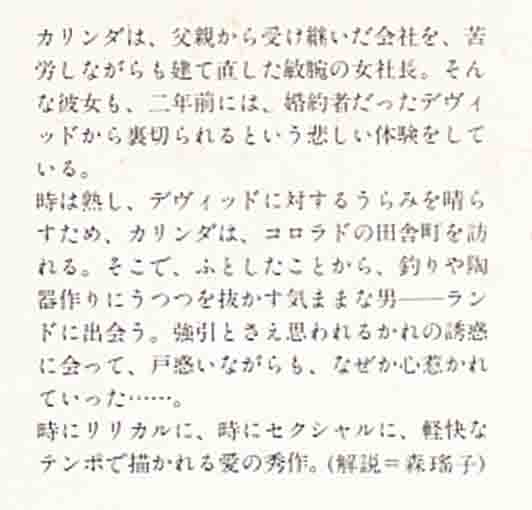 カリンダは、父親から受け継いだ会社を、苦
労しながらも建て直した敏腕の女社長。そん
な彼女も、二年前には、婚約者だったデヴィ
ッドから裏切られるという悲しい体験をして
いる。
時は熟し、デヴィッドに対するうらみを晴ら
すため、カリンダは、コロラドの田舎町を訪
れる。そこで、ふとしたことから、釣りや陶
器作りにうつつを抜かす気ままな男――ラン
ドに出会う。強引とさえ思われるかれの誘惑
に会って、戸惑いながらも、なぜか心惹かれ
ていった……。
時にリリカルに、時にセクシャルに、軽快な
テンポで描かれる愛の秀作。(解説＝森瑤子)